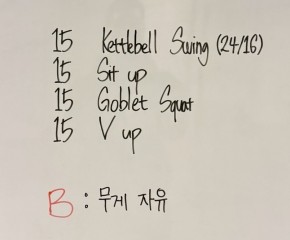 15 Kettlebell Swing (24/16)
15 Sit up
15 Goblet Squat
15 V up
B : 무게 자유